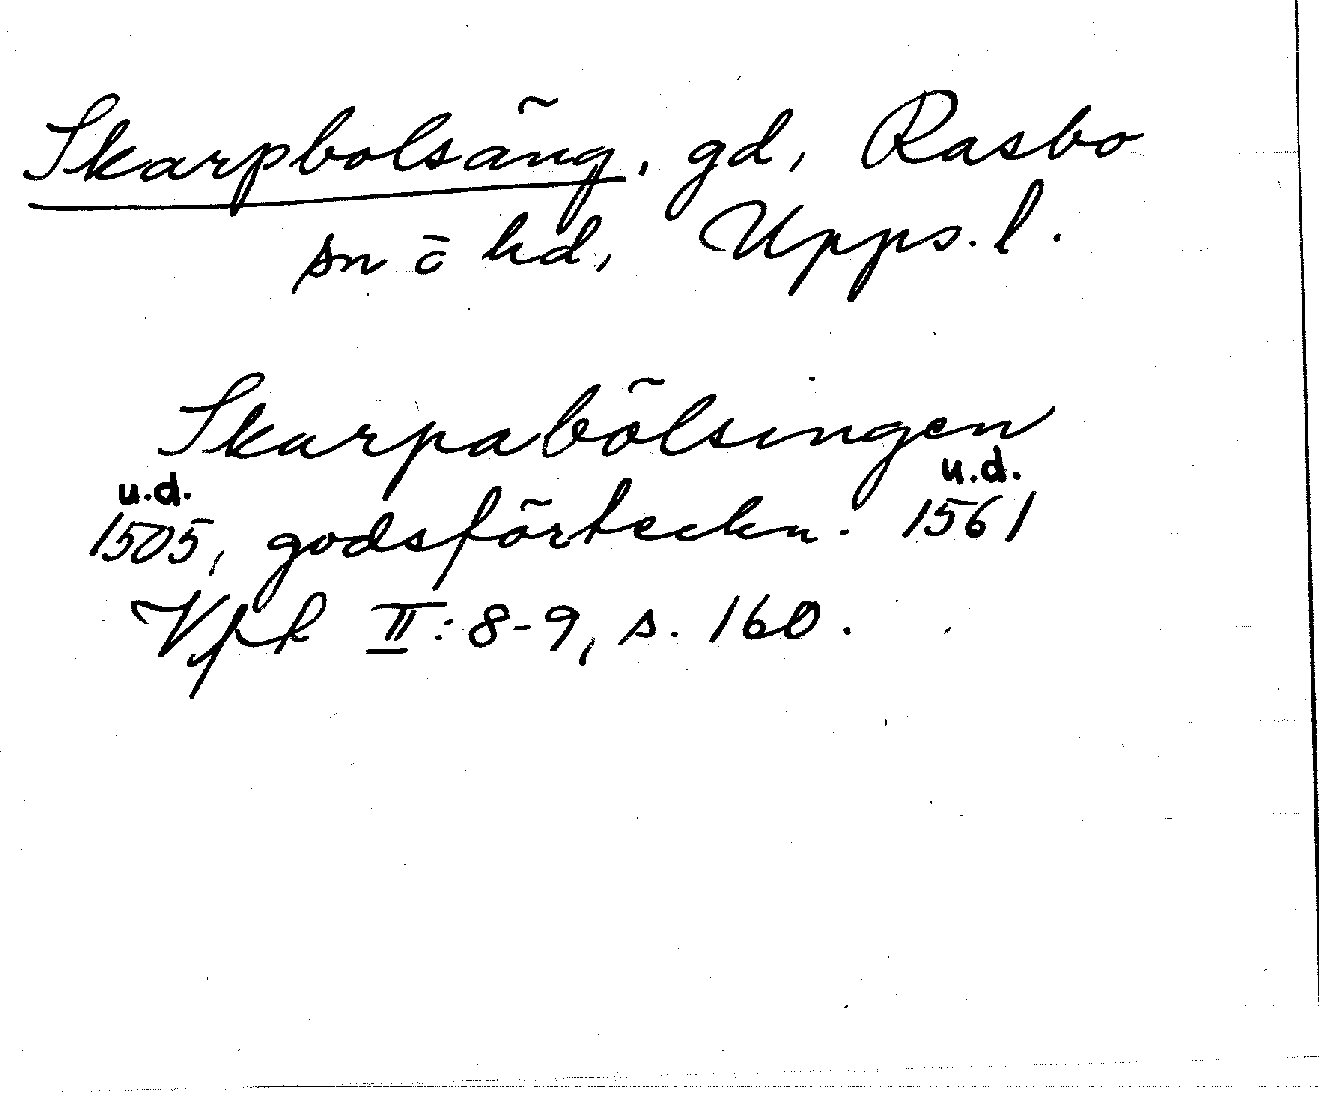 Skarpbolsäng, gd, Rasbo
sn o hd, Upps. l.
Skarpabölsingen
u.d. u.d.
1505, godsförteckn. 1561
Vfk II: 8-9, s. 160.